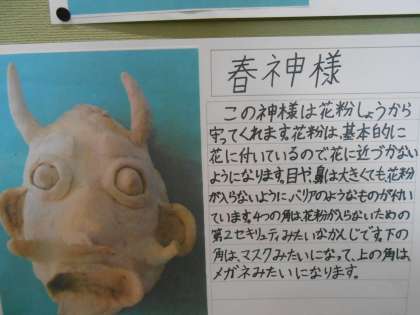 春神様
この神様は花粉しょうから
守ってくれます。花粉は、基本的に
花に付いているので花に近づかない
ようになります。目や、鼻は大きくても花粉
が入らないように、バリアのようなものが付い
ています。4つの角は、花粉が入らないための
第2セキュリティみたいなかんじです。下の
角は、マスクみたいになって、上の角は、
メガネみたいになります。